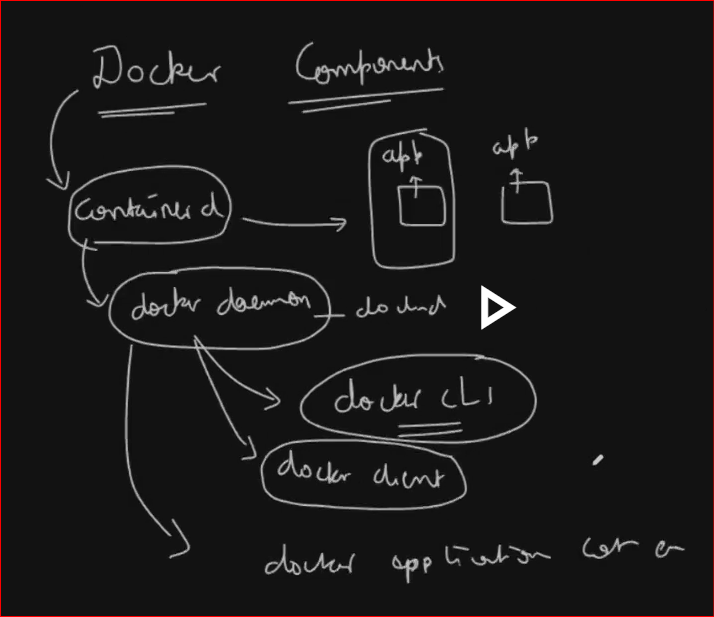 Docker Components
app
app
containerd
docker daemon - dockerd
docker CLI
docker client
docker application